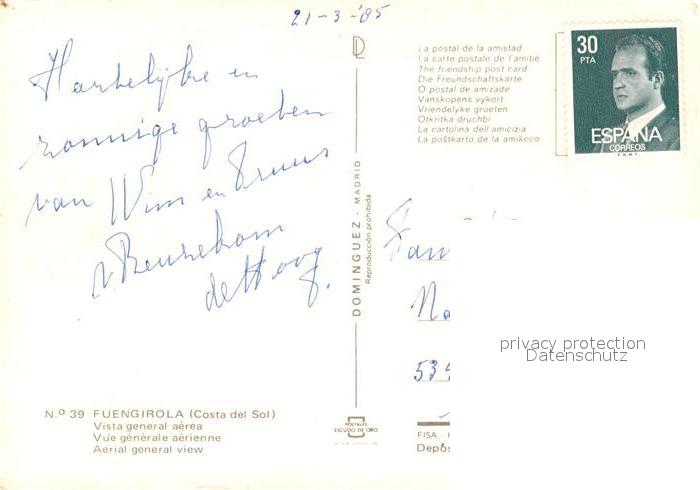 21-3-'85
Hartelijke en
zonnige groeten
van Wim en Truus
v. Beusekom
de Hoog.
La postal de la amistad
La carte postale de l'amitié
The friendship post card
Die Freundschaftskarte
O postal de amizade
Vanskapens vykort
Vriendelyke groeten
Otkritka druchbi
La cartolina dell'amicizia
La poŝtkarto de la amikeco
30
PTA
ESPAÑA
CORREOS
F.N.M.T.
DOMINGUEZ - MADRID
Reproducción prohibida
Fam
Na
534
privacy protection
Datenschutz
N.º 39 FUENGIROLA (Costa del Sol)
Vista general aérea
Vue générale aérienne
Aerial general view
POSTALES
ESCUDO DE ORO
FISA.
Depós